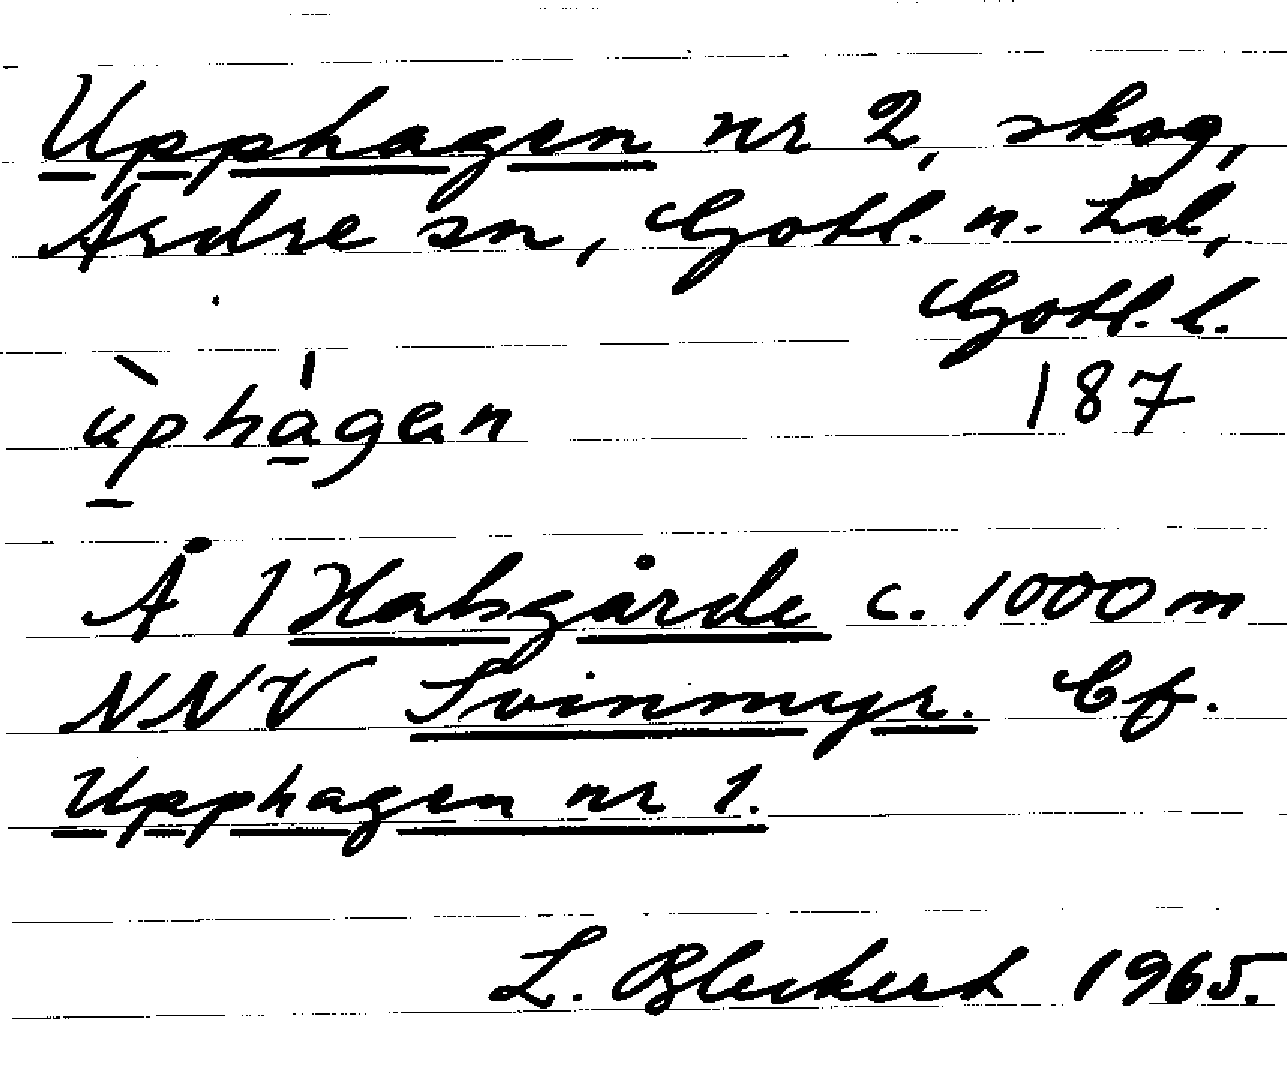 Upphagen nr 2, skog,
Ardre sn, Gotl. n. hd,
Gotl. l.
187
ùphágen
Å 1 Halsgårde c. 1000 m
NNV Svinmyr. Cf.
Upphagen nr 1.
L. Bleckert 1965.